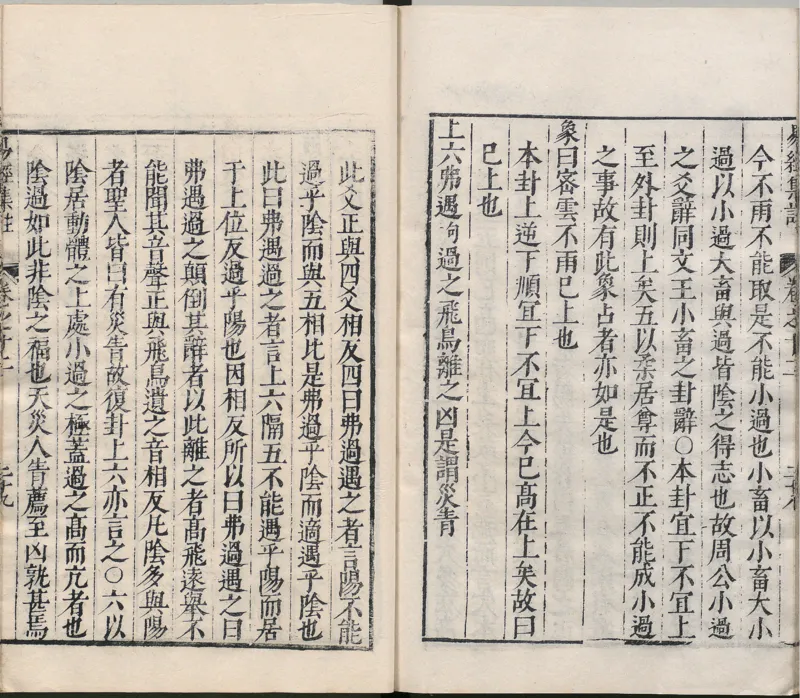 今不雨不能取是不能小過也小畜以小畜大小
過以小過大畜與過皆陰之得志也故周公小過
之爻辭同文王小畜之卦辭○本卦宜下不宜上
至外卦則上矣五以柔居尊而不正不能成小過
之事故有此象占者亦如是也
象曰密雲不雨已上也
本卦上逆下順宜下不宜上今已高在上矣故曰
已上也
上六弗遇過之飛鳥離之凶是謂災眚
此爻正與四爻相反四曰弗過遇之者言陽不能
過乎陰而與五相比是弗過乎陰而適遇乎陰也
此曰弗遇過之者言上六隔五不能遇乎陽而居
于上位反過乎陽也因相反所以曰弗過遇之曰
弗遇過之顛倒其辭者以此離之者高飛遠舉不
能聞其音聲正與飛鳥遺之音相反凡陰多與陽
者聖人皆曰有災眚故復卦上六亦言之○六以
陰居動體之上處小過之極蓋過之高而亢者也
陰過如此非陰之福也天災人眚薦至凶孰甚焉